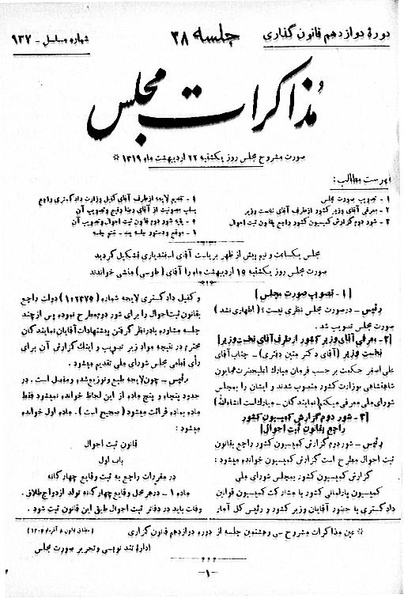 دورهٔ دوازدهم قانون گذاری
جلسه ۳۸
شماره مسلسل - ۹۳۷
مذاکرات مجلس
صورت مشروح مجلس روز یکشنبه ۲۲ اردیبهشت ماه ۱۳۱۹ *
فهرست مطالب:
۱ - تصویب صورت مجلس
۲ - معرفی آقای وزیر کشور از طرف آقای نخست وزیر
۳ - شور دوم گزارش کمیسیون کشور راجع بقانون ثبت احوال
۴ - تقدیم لایحه از طرف آقای کفیل وزارت دادگستری راجع
بسلب مصونیت از آقای رضا رفیع و تصویب آن
۵ - بقیه شور دوم قانون ثبت احوال و تصویب آن
۶ - موقع و دستور جلسه بعد - ختم جلسه
مجلس یکساعت و نیم پیش از ظهر بریاست آقای اسفندیاری تشکیل گردید
صورت مجلس روز یکشنبه ۱۵ اردیبهشت ماه را آقای (طوسی) منشی خواندند
[۱ - تصویب صورت مجلس]
رئیس - در صورت مجلس نظری نیست؟ (اظهاری نشد)
صورت مجلس تصویب شد.
[۲ - معرفی آقای وزیر کشور از طرف آقای نخست وزیر]
نخست وزیر (آقای دکتر متین دفتری) - جناب آقای
علی اصغر حکمت بر حسب فرمان مبارک اعلیحضرت همایون
شاهنشاهی بوزارت کشور منصوب شدند و ایشان را بمجلس
شورای ملی معرفی میکنم (نمایندگان - مبارک است انشاءالله)
[۳ - شور دوم گزارش کمیسیون کشور
راجع بقانون ثبت احوال]
رئیس - شور دوم گزارش کمیسیون کشور راجع بقانون
ثبت احوال مطرح است گزارش کمیسیون خوانده میشود:
گزارش کمیسیون کشور بمجلس شورای ملی
کمیسیون پارلمانی کشور با مشارکت کمیسیون قوانین
دادگستری با حضور آقایان وزیر کشور و رئیس کل آمار
و کفیل دادگستری لایحه شماره (۱۰۲۳۷۵) دولت راجع
بقانون ثبت احوال را برای شور دوم مطرح نموده پس از چند
جلسه مشاوره با در نظر گرفتن پیشنهادات آقایان نمایندگان
محترم در نتیجه مواد زیر تصویب و اینک گزارش آن برای
رأی قطعی مجلس شورای ملی تقدیم میشود.
رئیس - چون لایحه طبع و توزیع شده و مفصل است. در
حدود پنجاه و پنج ماده از این لحاظ خوانده نمیشود فقط
ماده بماده قرائت میشود (صحیح است). ماده اول خوانده
میشود:
قانون ثبت احوال
باب اول
در مقررات راجع به ثبت وقایع چهارگانه
ماده ۱ - در هر محل وقایع چهارگانه تولد ازدواج طلاق.
وفات باید در دفاتر ثبت احوال طبق این قانون ثبت شود.
* عین مذاکرات مشروح سی و هشتمین جلسه از دوره دوازدهم قانون گزاری
اداره تند نویسی و تحریر صورت مجلس
- ۱ -